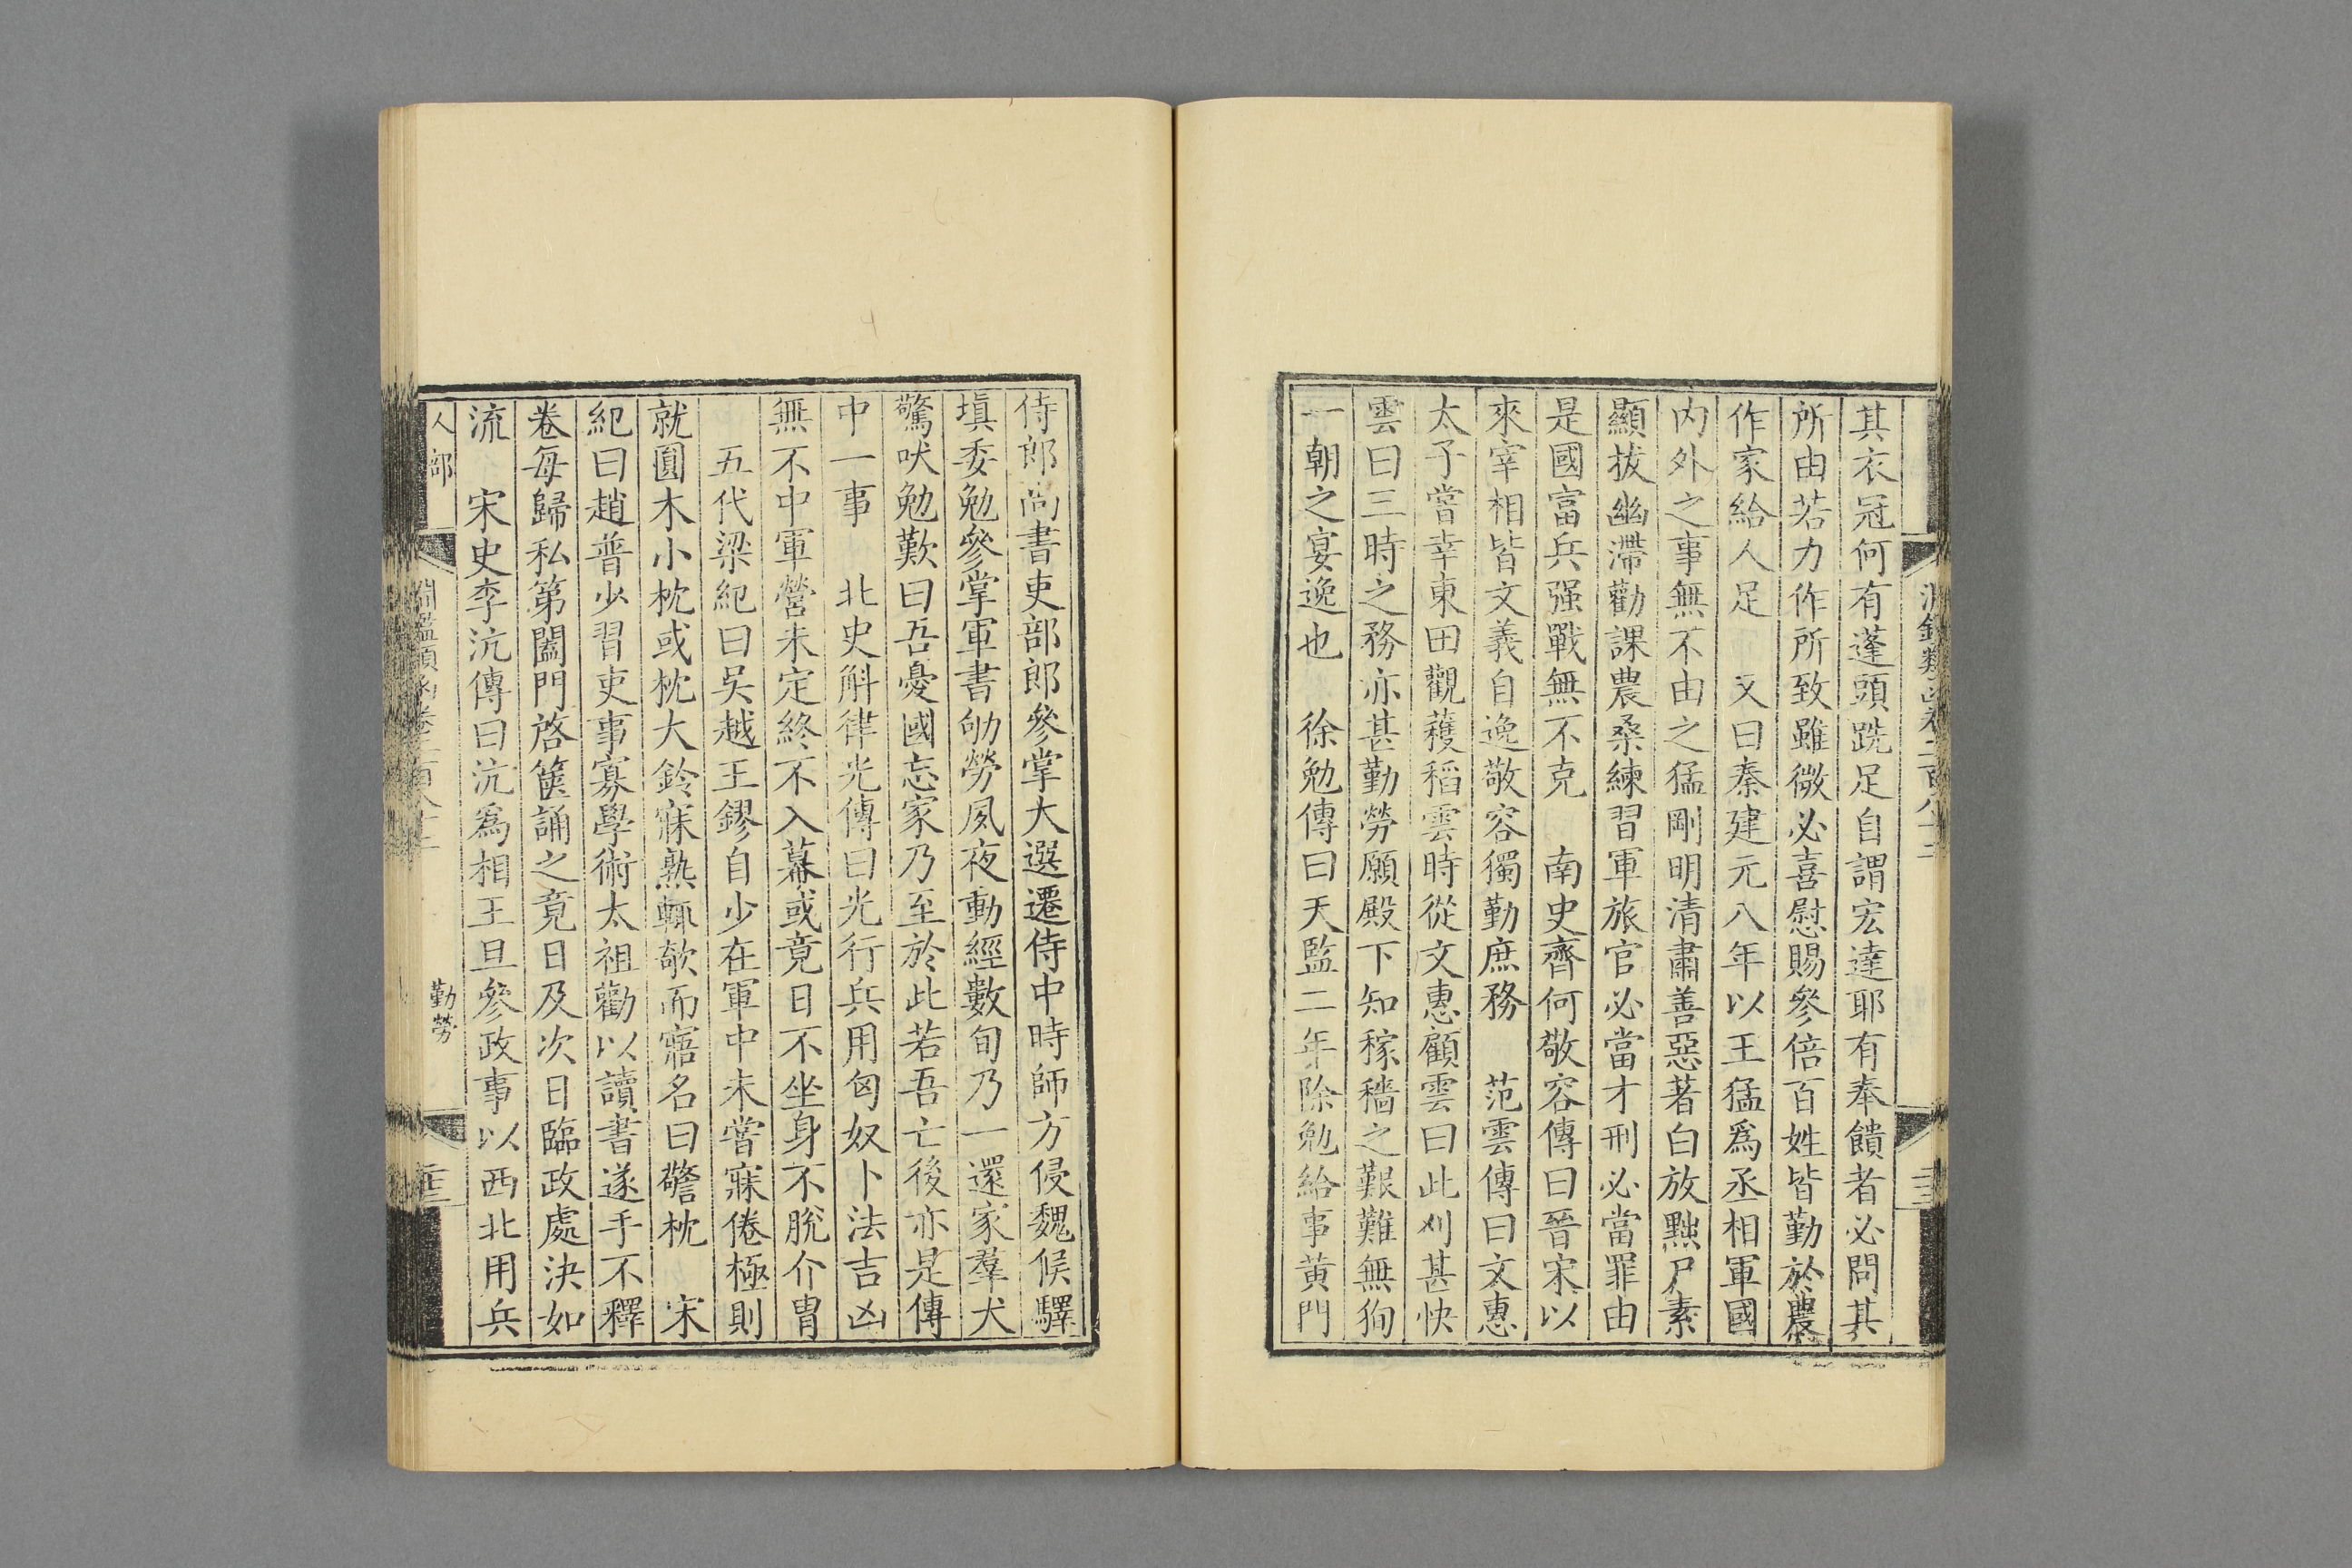 其衣冠何有蓬頭跣足自謂宏達耶有奉饋者必問其
所由若力作所致雖微必喜慰賜參倍百姓皆勤於農
作家給人足　又曰秦建元八年以王猛爲丞相軍國
内外之事無不由之猛剛明清肅善惡著白放黜尸素
顯拔幽滯勸課農桑練習軍旅官必當才刑必當罪由
是國富兵强戰無不克　南史齊何敬容傳曰晉宋以
來宰相皆文義自逸敬容獨勤庶務　范雲傳曰文惠
太子嘗幸東田觀穫稻雲時從文惠顧雲曰此刈甚快
雲曰三時之務亦甚勤勞願殿下知稼穡之艱難無狥
一朝之宴逸也　徐勉傳曰天監二年除勉給事黄門
侍郎尚書吏部郎參掌大選遷侍中時師方侵魏候驛
塡委勉參掌軍書劬勞夙夜動經數旬乃一還家羣犬
驚吠勉歎曰吾憂國忘家乃至於此若吾亡後亦是傳
中一事　北史斛律光傳曰光行兵用匈奴卜法吉凶
無不中軍營未定終不入幕或竟日不坐身不脫介胄
五代梁紀曰吳越王鏐自少在軍中未嘗寐倦極則
就圓木小枕或枕大鈴寐熟輒欹而寤名曰警枕　宋
紀曰趙普少習吏事寡學術太祖勸以讀書遂手不釋
卷每歸私第闔門啓篋誦之竟日及次日臨政處決如
流　宋史李沆傳曰沆爲相王旦參政事以西北用兵
人部
淵鑑類函卷二百八十二
勤勞